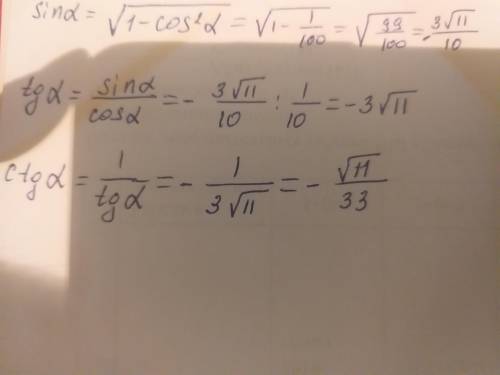 sinα = √(1-cos²α) = √(1 - 1/100) = √(99/100) = - 3√11/10
tgα = sinα/cosα = - 3√11/10 : 1/10 = -3√11
ctgα = 1/tgα = - 1/(3√11) = - √11/33